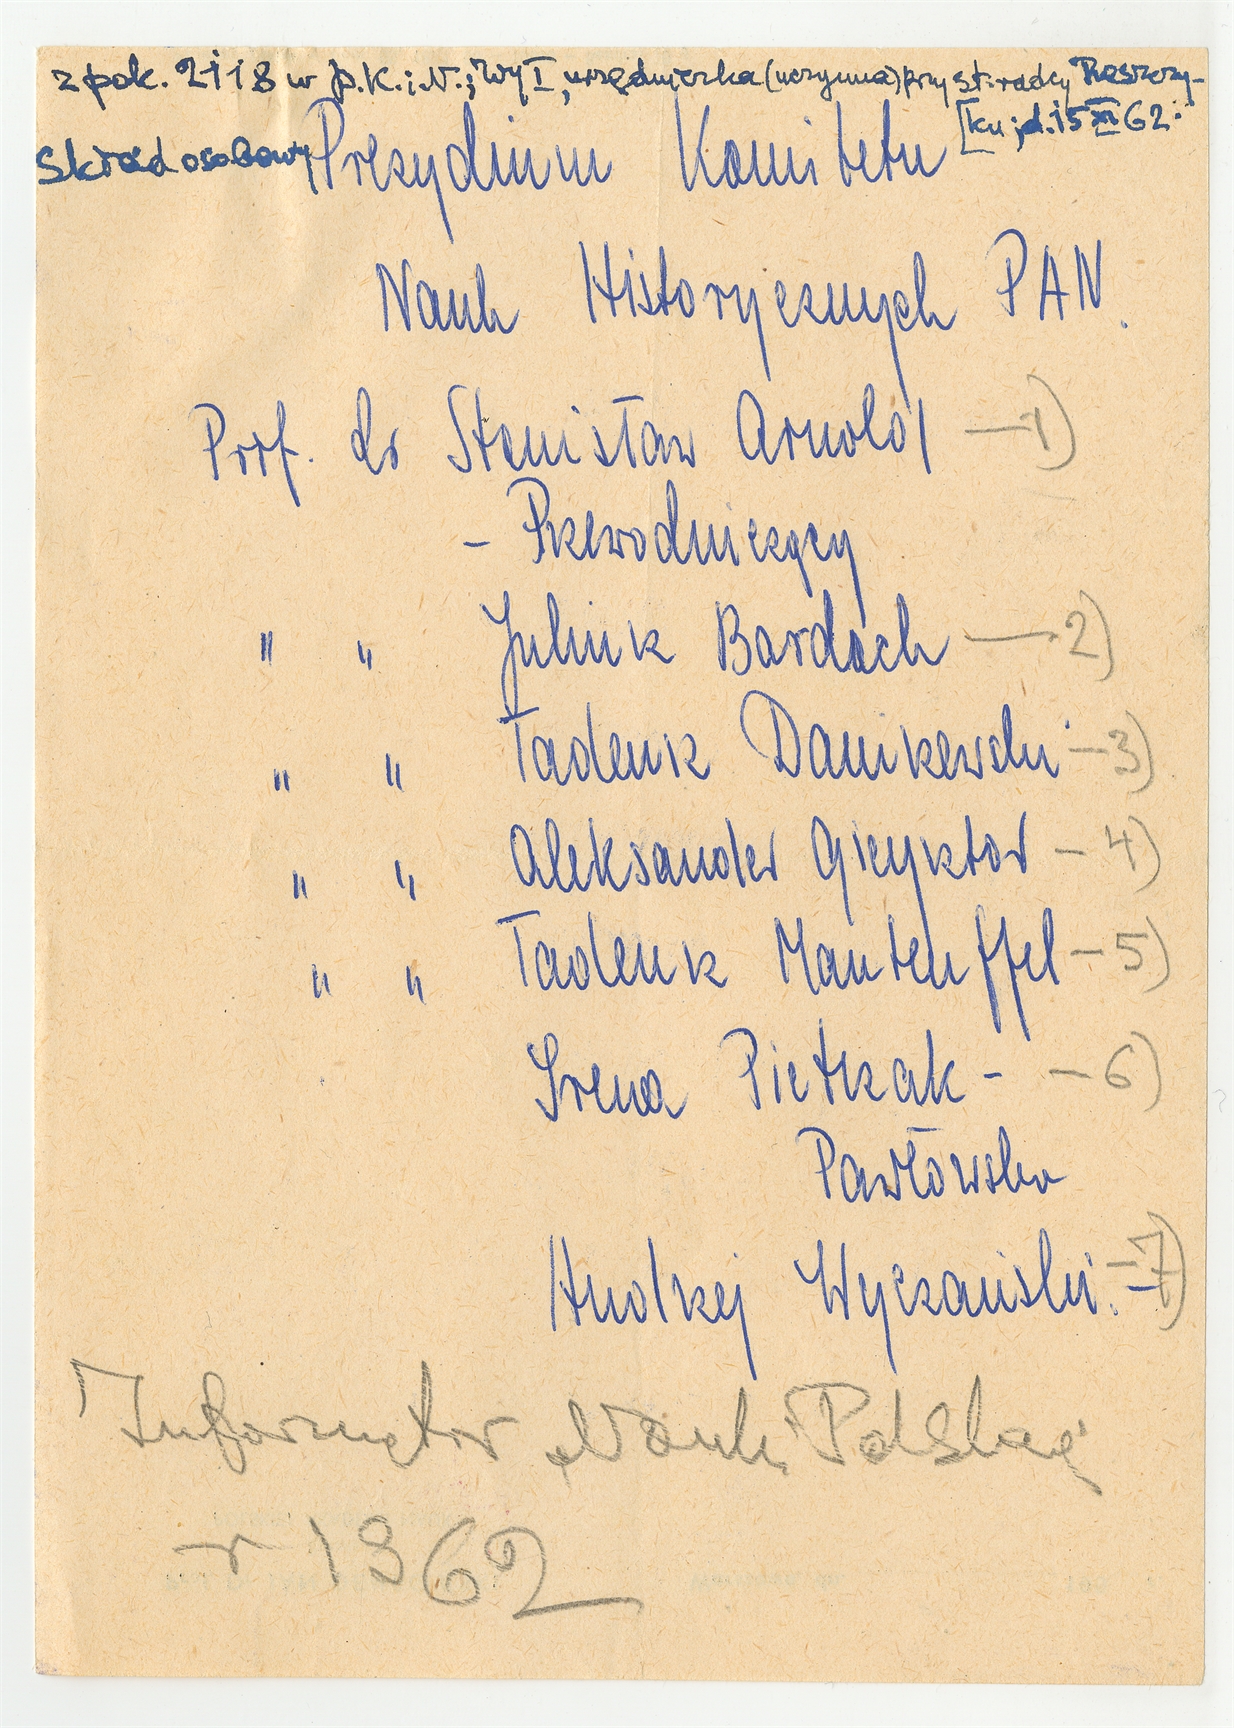 z pok. 2118 w P.K.i.N.; Wy I, urzędniczka (uczynna) przy st. radcy Raszczy-
[ku; d. 15 XI 62:
Skład osobowy Prezydium Komitetu
Nauk Historycznych PAN.
Prof. dr Stanisław Arnold — 1)
- Przewodniczący
" " Juliusz Bardach — 2)
" " Tadeusz Daniszewski — 3)
" " Aleksander Gieysztor — 4)
" " Tadeusz Manteuffel — 5)
Irena Pietrzak- — 6)
Pawłowska
Andrzej Wyczański. — 7)
Informator „Nauki Polskiej"
r 1962